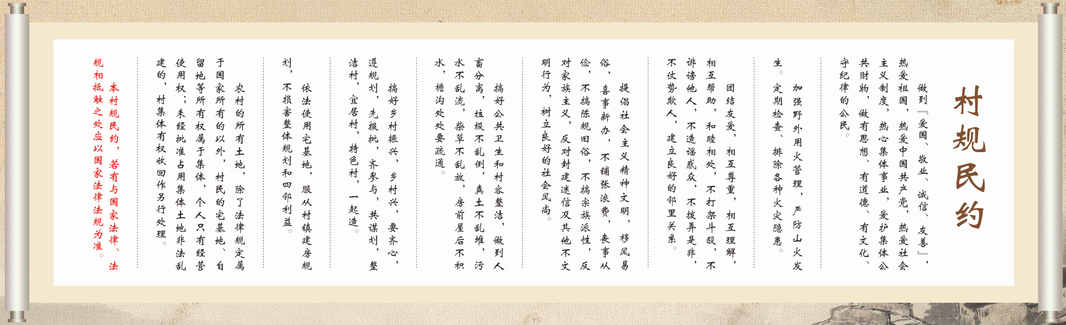 村规民约
做到『爱国、敬业、诚信、友善』，
热爱祖国，热爱中国共产党，热爱社会
主义制度，热心集体事业，爱护集体公
共财物，做有思想、有道德、有文化、
守纪律的公民。
加强野外用火管理，严防山火发
生。定期检查、排除各种火灾隐患。
团结友爱，相互尊重，相互理解，
相互帮助，和睦相处，不打架斗殴，不
诽谤他人，不造谣惑众，不拨弄是非，
不仗势欺人，建立良好的邻里关系。
提倡社会主义精神文明，移风易
俗，喜事新办，不铺张浪费，丧事从
俭，不搞陈规旧俗，不搞宗族派性，反
对家族主义，反对封建迷信及其他不文
明行为，树立良好的社会风尚。
搞好公共卫生和村容整洁，做到人
畜分离，垃圾不乱倒，粪土不乱堆，污
水不乱流，柴草不乱放，房前屋后不积
水，檐沟处处要疏通。
搞好乡村振兴，乡村兴，要齐心，
遵规划，先报批，齐参与，共谋划，整
洁村，宜居村，特色村，一起造。
依法使用宅基地，服从村镇建房规
划，不损害整体规划和四邻利益。
农村的所有土地，除了法律规定属
于国家所有的以外，村民的宅基地、自
留地等所有权属于集体，个人只有经营
使用权；未经批准占用集体土地非法乱
建的，村集体有权收回作另行处理。
本村规民约，若有与国家法律、法
规相抵触之处应以国家法律法规为准。